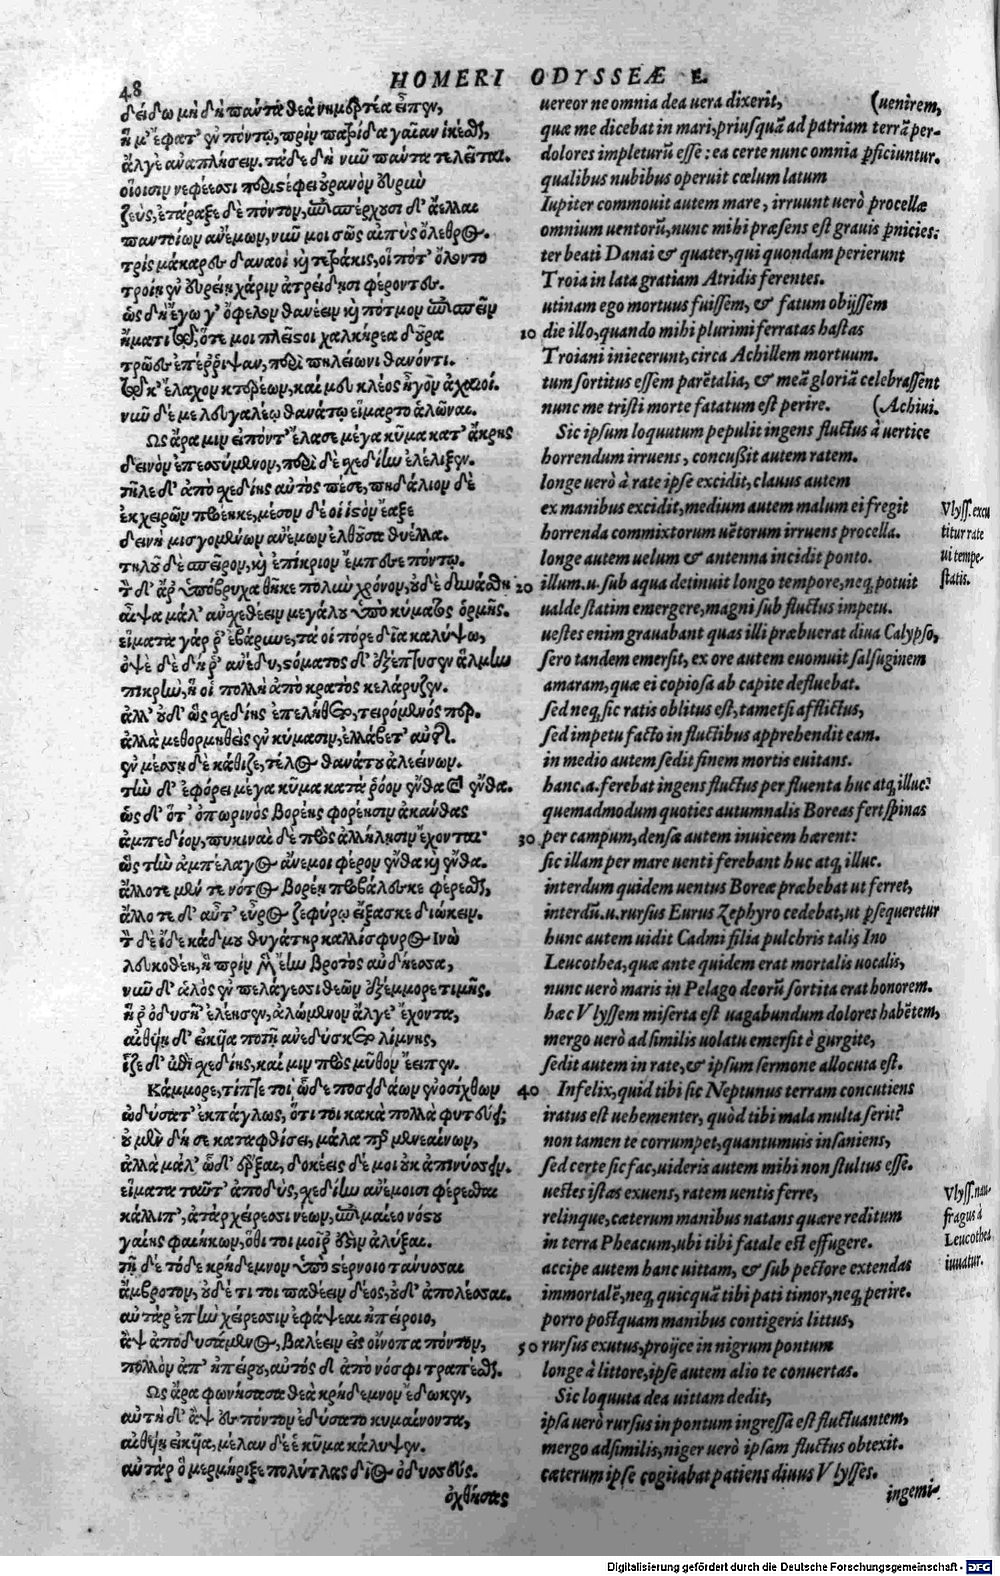 48
HOMERI ODYSSEÆ E.
δείδω μὴ δὴ πάντα θεὰ νημερτέα εἶπεν,
ἥ μ' ἔφατ' ἐν πόντῳ, πρὶν πατρίδα γαῖαν ἱκέσθαι,
ἄλγε' ἀναπλήσειν. τάδε δὴ νῦν πάντα τελεῖται.
οἵοισιν νεφέεσσι περιστέφει οὐρανὸν εὐρὺν
ζεὺς, ἐτάραξε δὲ πόντον, ἐπισπέρχουσι δ' ἄελλαι
παντοίων ἀνέμων, νῦν μοι σῶς αἰπὺς ὄλεθρος.
τρὶς μάκαρες δαναοὶ καὶ τετράκις, οἳ πότ' ὄλοντο
τροίῃ ἐν εὐρείῃ χάριν ἀτρείδῃσι φέροντες.
ὡς δὴ ἔγωγ' ὄφελον θανέειν καὶ πότμον ἐπισπεῖν
ἤματι τῷ, ὅτε μοι πλεῖστοι χαλκήρεα δοῦρα
τρῶες ἐπέρριψαν, περὶ πηλείωνι θανόντι.
τῷ κ' ἔλαχον κτερέων, καί μευ κλέος ἦγον ἀχαιοί.
νῦν δέ με λευγαλέῳ θανάτῳ εἵμαρτο ἁλῶναι.
Ὣς ἄρα μιν εἰπόντ' ἔλασε μέγα κῦμα κατ' ἄκρης
δεινὸν ἐπεσσύμενον, περὶ δὲ σχεδίην ἐλέλιξεν.
τῆλε δ' ἀπὸ σχεδίης αὐτὸς πέσε, πηδάλιον δὲ
ἐκ χειρῶν προέηκε, μέσον δέ οἱ ἱστὸν ἔαξε
δεινὴ μισγομένων ἀνέμων ἐλθοῦσα θύελλα.
τηλοῦ δὲ σπεῖρον, καὶ ἐπίκριον ἔμπεσε πόντῳ.
τὸν δ' ἄρ' ὑπόβρυχα θῆκε πολὺν χρόνον, οὐδὲ δυνάσθη
αἶψα μάλ' ἀνσχεθέειν μεγάλου ὑπὸ κύματος ὁρμῆς.
εἵματα γάρ ῥ' ἐβάρυνε, τά οἱ πόρε δῖα καλυψώ,
ὀψὲ δὲ δή ῥ' ἀνέδυ, στόματος δ' ἐξέπτυσεν ἅλμην
πικρὴν, ἥ οἱ πολλὴ ἀπὸ κρατὸς κελάρυζεν.
ἀλλ' οὐδ' ὣς σχεδίης ἐπελήθετο, τειρόμενός περ.
ἀλλὰ μεθορμηθεὶς ἐν κύμασιν, ἐλλάβετ' αὐτῆς.
ἐν μέσσῃ δὲ κάθιζε, τέλος θανάτου ἀλεείνων.
τὴν δ' ἐφόρει μέγα κῦμα κατὰ ῥόον ἔνθα καὶ ἔνθα.
ὡς δ' ὅτ' ὀπωρινὸς βορέης φορέησιν ἀκάνθας
ἀμπεδίον, πυκιναὶ δὲ πρὸς ἀλλήλῃσιν ἔχονται·
ὣς τὴν ἀμπέλαγος ἄνεμοι φέρον ἔνθα καὶ ἔνθα.
ἄλλοτε μέν τε νότος βορέῃ προβάλεσκε φέρεσθαι,
ἄλλοτε δ' αὖτ' εὖρος ζεφύρῳ εἴξασκε διώκειν.
τὸν δὲ ἴδε κάδμου θυγάτηρ καλλίσφυρος Ἰνὼ
λευκοθέη, ἣ πρὶν μὲν ἔην βροτὸς αὐδήεσσα,
νῦν δ' ἁλὸς ἐν πελάγεσσι θεῶν ἐξέμμορε τιμῆς.
ἥ ῥ' ὀδυσῆ' ἐλέησεν, ἀλώμενον ἄλγε' ἔχοντα,
αἰθυίῃ δ' εἰκυῖα ποτῇ ἀνεδύσετο λίμνης,
ἷζε δ' ἐπὶ σχεδίης, καί μιν πρὸς μῦθον ἔειπεν.
Κάμμορε, τίπτε τοι ὧδε ποσειδάων ἐνοσίχθων
ὠδύσατ' ἐκπάγλως, ὅτι τοι κακὰ πολλὰ φυτεύει;
οὐ μὲν δή σε καταφθίσει, μάλα περ μενεαίνων,
ἀλλὰ μάλ' ὧδ' ἔρξαι, δοκέεις δέ μοι οὐκ ἀπινύσσειν.
εἵματα ταῦτ' ἀποδὺς, σχεδίην ἀνέμοισι φέρεσθαι
κάλλιπ', ἀτὰρ χείρεσσι νέων, ἐπιμαίεο νόστου
γαίης φαιήκων, ὅθι τοι μοῖρ' ἐστὶν ἀλύξαι.
τῆ δὲ τόδε κρήδεμνον ὑπὸ στέρνοιο τανύσσαι
ἄμβροτον, οὐδέ τι τοι παθέειν δέος, οὐδ' ἀπολέσσαι.
αὐτὰρ ἐπὴν χείρεσσιν ἐφάψεαι ἠπείροιο,
ἂψ ἀποδυσάμενος, βαλέειν εἰς οἴνοπα πόντον,
πολλὸν ἀπ' ἠπείρου, αὐτὸς δ' ἀπὸ νόσφι τραπέσθαι.
Ὣς ἄρα φωνήσασα θεὰ κρήδεμνον ἔδωκεν,
αὐτὴ δ' ἂψ ἐς πόντον ἐδύσατο κυμαίνοντα,
αἰθυίῃ εἰκυῖα, μέλαν δέ ἑ κῦμα κάλυψεν.
αὐτὰρ ὃ μερμήριξε πολύτλας δῖος ὀδυσσεύς.
ὀχθήσας
uereor ne omnia dea uera dixerit, (uenirem,
quæ me dicebat in mari, priusquã ad patriam terrã per-
dolores impleturũ esse: ea certe nunc omnia pficiuntur.
qualibus nubibus operuit cœlum latum
Iupiter commouit autem mare, irruunt uerò procellæ
omnium uentorũ, nunc mihi præsens est grauis pnicies:
ter beati Danai & quater, qui quondam perierunt
Troia in lata gratiam Atridis ferentes.
utinam ego mortuus fuissem, & fatum obijssem
10 die illo, quando mihi plurimi ferratas hastas
Troiani iniecerunt, circa Achillem mortuum.
tum sortitus essem parẽtalia, & meã gloriã celebrassent
nunc me tristi morte fatatum est perire. (Achiui.
Sic ipsum loquutum pepulit ingens fluctus à uertice
horrendum irruens, concußit autem ratem.
longe uerò à rate ipse excidit, clauus autem
ex manibus excidit, medium autem malum ei fregit
horrenda commixtorum uẽtorum irruens procella.
longe autem uelum & antenna incidit ponto.
20 illum.u.sub aqua detinuit longo tempore, neq; potuit
ualde statim emergere, magni sub fluctus impetu.
uestes enim grauabant quas illi præbuerat diua Calypso,
sero tandem emersit, ex ore autem euomuit salsuginem
amaram, quæ ei copiosa ab capite defluebat.
sed neq; sic ratis oblitus est, tametsi afflictus,
sed impetu facto in fluctibus apprehendit eam.
in medio autem sedit finem mortis euitans.
hanc.a.ferebat ingens fluctus per fluenta huc atq; illuc:
quemadmodum quoties autumnalis Boreas fert spinas
30 per campum, densæ autem inuicem hærent:
sic illam per mare uenti ferebant huc atq; illuc.
interdum quidem uentus Boreæ præbebat ut ferret,
interdũ.u.rursus Eurus Zephyro cedebat, ut psequeretur
hunc autem uidit Cadmi filia pulchris talis Ino
Leucothea, quæ ante quidem erat mortalis uocalis,
nunc uerò maris in Pelago deorũ sortita erat honorem.
hæc Vlyssem miserta est uagabundum dolores habẽtem,
mergo uerò adsimilis uolatu emersit è gurgite,
sedit autem in rate, & ipsum sermone allocuta est.
40 Infelix, quid tibi sic Neptunus terram concutiens
iratus est uehementer, quòd tibi mala multa serit?
non tamen te corrumpet, quantumuis insaniens,
sed certe sic fac, uideris autem mihi non stultus esse.
uestes istas exuens, ratem uentis ferre,
relinque, cæterum manibus natans quære reditum
in terra Pheacum, ubi tibi fatale est effugere.
accipe autem hanc uittam, & sub pectore extendas
immortalẽ, neq; quicquã tibi pati timor, neq; perire.
porro postquam manibus contigeris littus,
50 rursus exutus, proijce in nigrum pontum
longe à littore, ipse autem alio te conuertas.
Sic loquuta dea uittam dedit,
ipsa uerò rursus in pontum ingressa est fluctuantem,
mergo adsimilis, niger uerò ipsam fluctus obtexit.
cæterum ipse cogitabat patiens diuus Vlysses.
ingemi-
Vlyss. excu
titur rate
ui tempe-
statis.
Vlyss. nau-
fragus à
Leucothea
iuuatur.
Digitalisierung gefördert durch die Deutsche Forschungsgemeinschaft - DFG